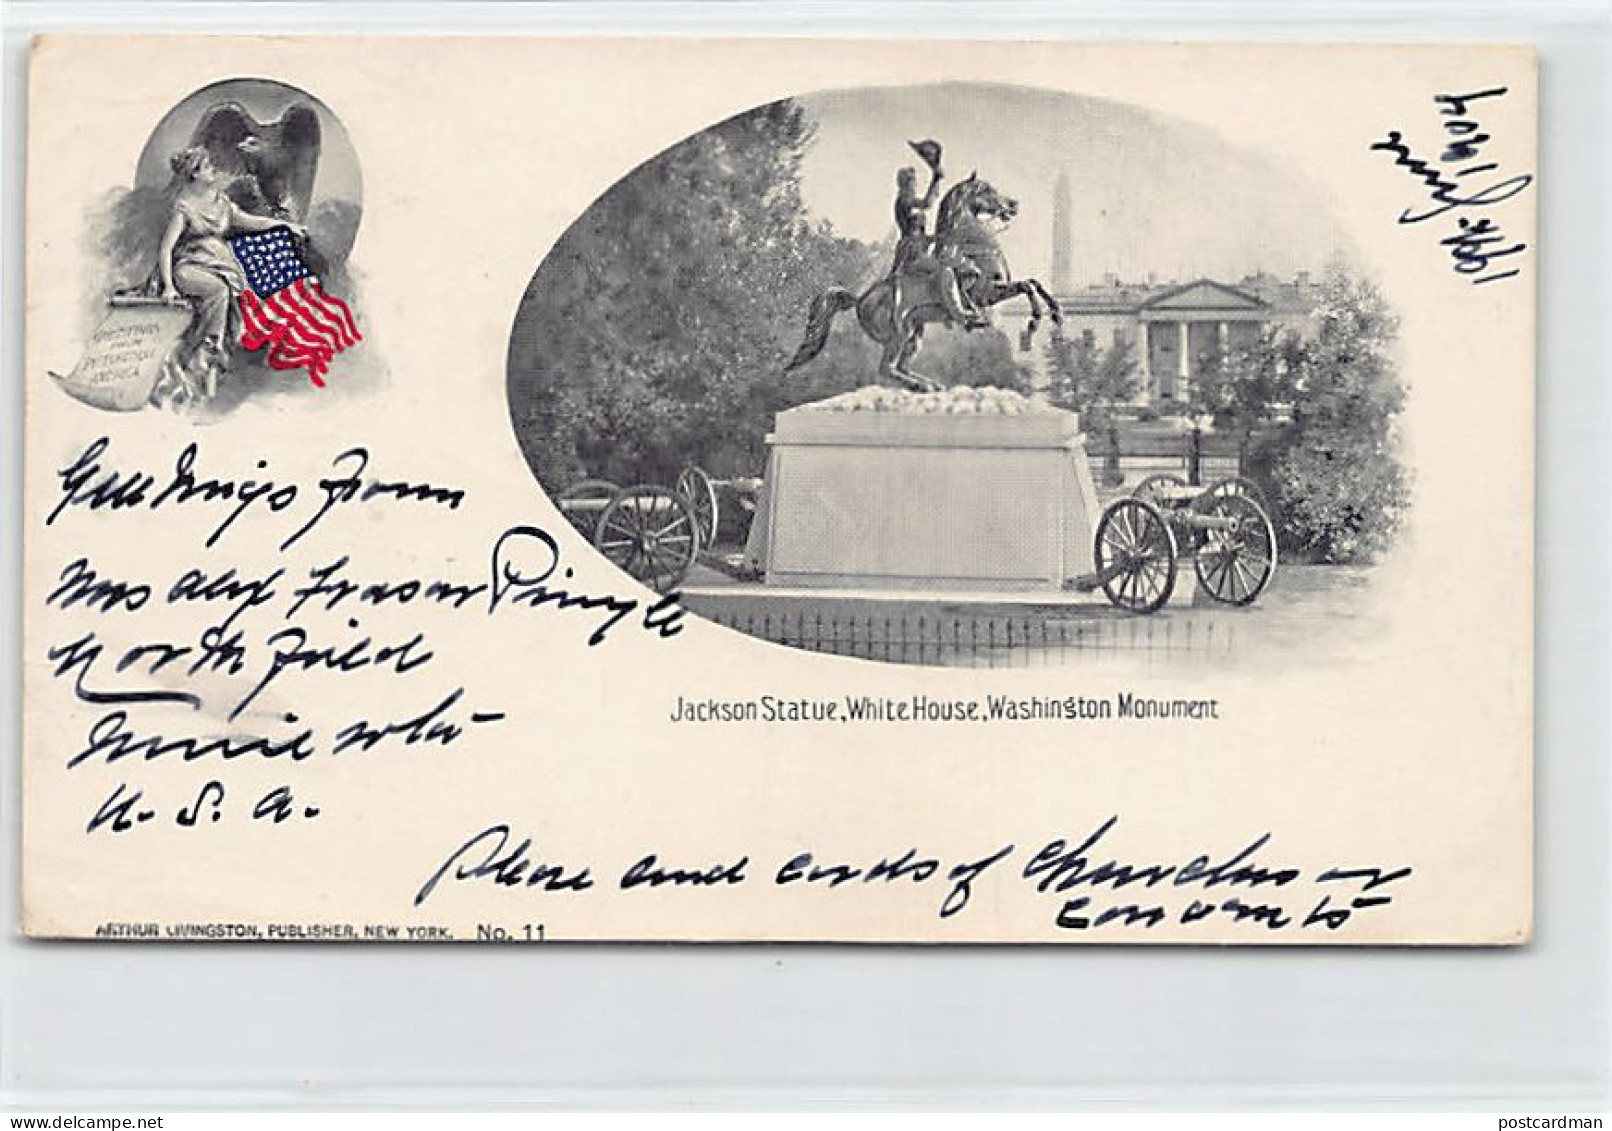 GREETINGS
FROM
PICTURESQUE
AMERICA
June
1904
Greetings from
Mrs Alex Fraser Pringle
North Field
Minnesota
U. S. A.
Jackson Statue, White House, Washington Monument
Please send cards of Churches or
Convents
ARTHUR LIVINGSTON, PUBLISHER, NEW YORK. No. 11
postcardman